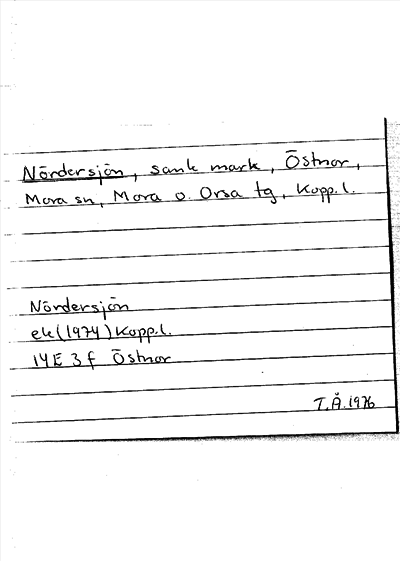 Nördersjön, sank mark, Östnor,
Mora sn, Mora o. Orsa tg, Kopp.l.
Nördersjön
ek (1974) Kopp.l.
14E 3f Östnor
T.Å. 1976